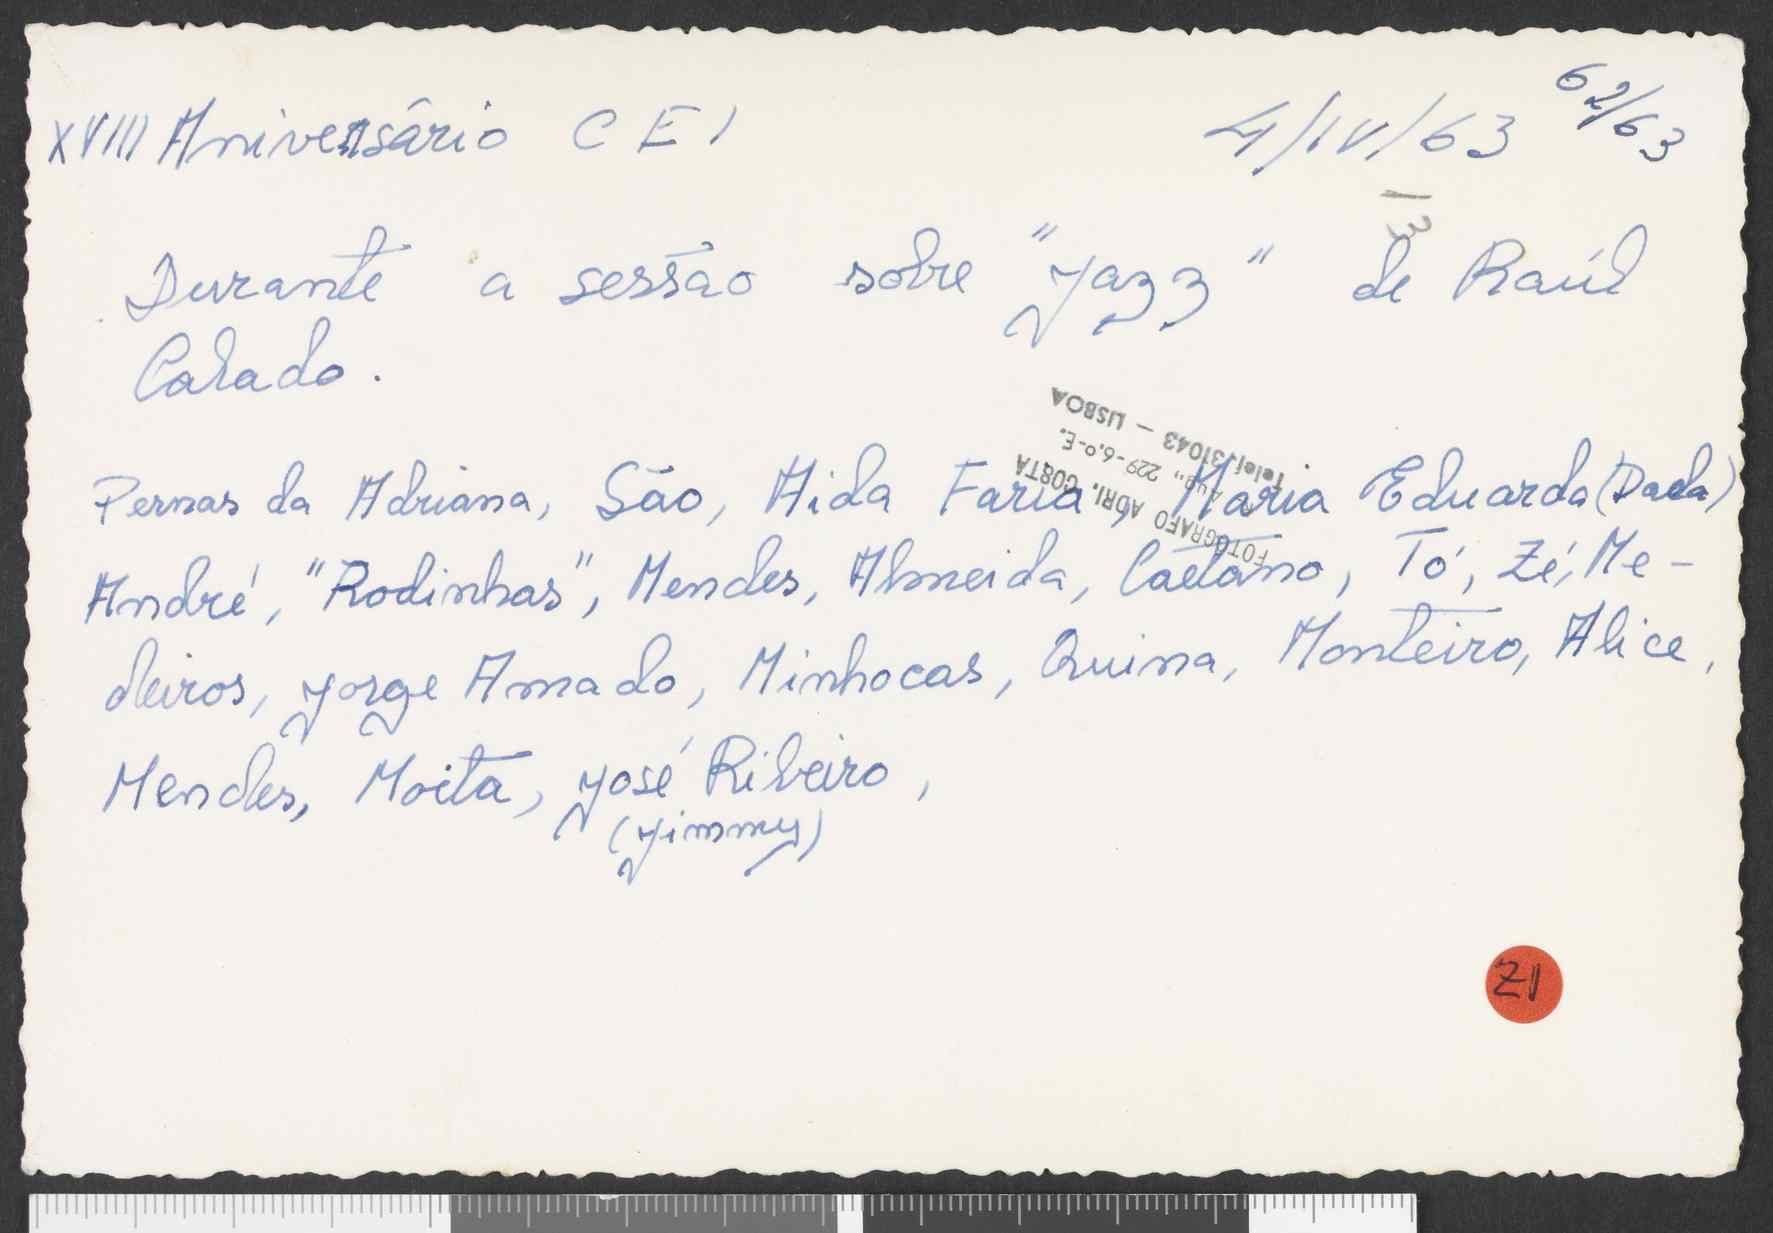 XVIII Aniversário C E I 4/IV/63 62/63
13
Durante a sessão sobre "Jazz" de Raúl
Calado.
Pernas da Adriana, São, Aida Faria, Maria Eduarda (Dada)
André, "Rodinhas", Mendes, Almeida, Caetano, Tó, Zé, Me-
deiros, Jorge Amado, Minhocas, Quina, Monteiro, Alice,
Mendes, Moita, José Ribeiro,
(Jimmy)
FOTÓGRAFO ADRI. COSTA
229-6.º-E.
Telef. 31043 — LISBOA
Z1